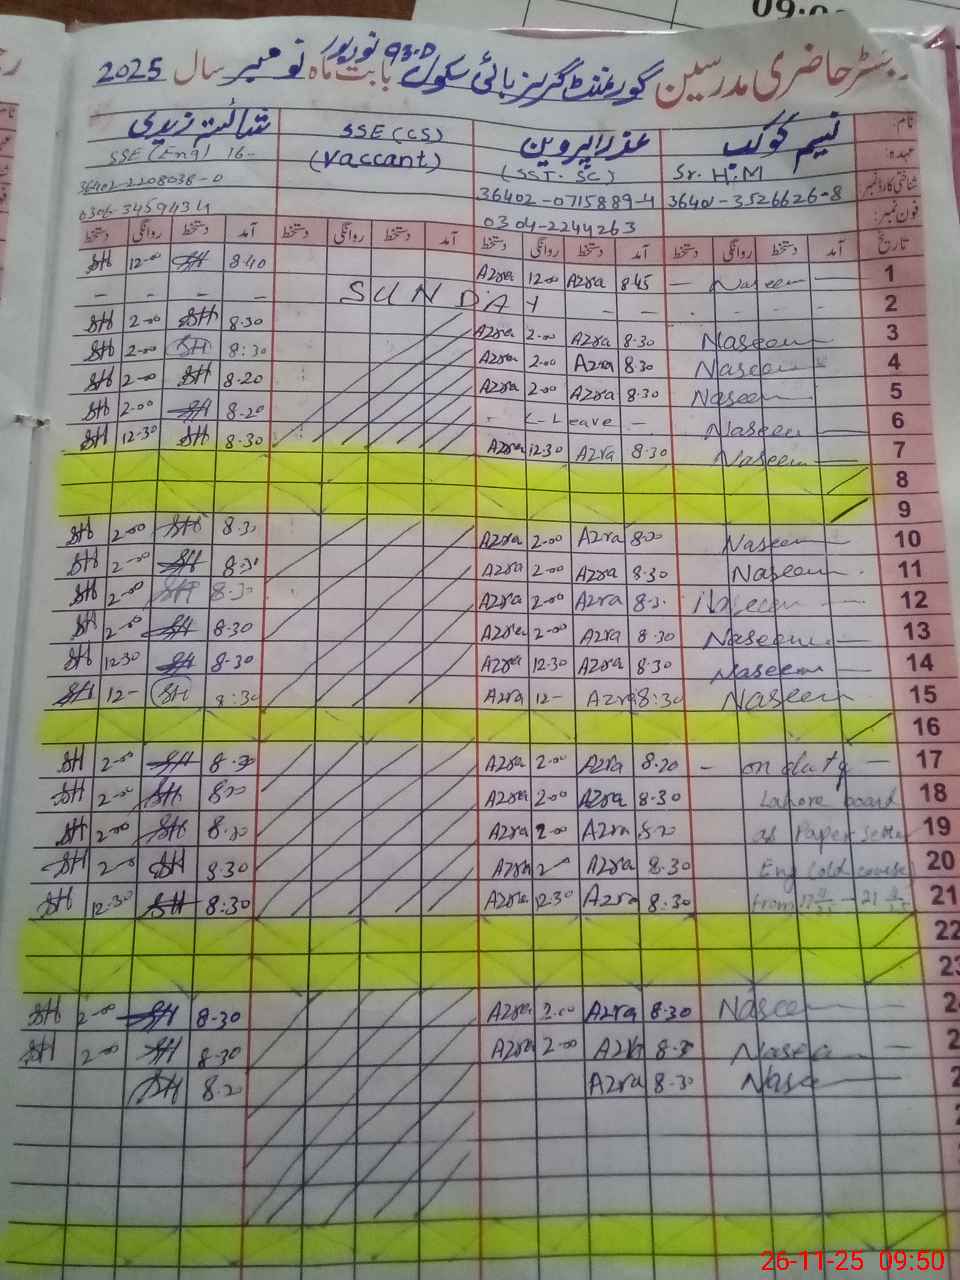 09:0
رجسٹر حاضری مدرسین گورنمنٹ گرلز ہائی سکول 93.D نورپور بابت ماہ نومبر سال 2025
نام: نسیم کوکب عذرا پروین SSE (CS) شائستہ زیدی
عہدہ: Sr. H.M (SST. SC) (Vaccant) SSE (Eng) 16-
شناختی کارڈ نمبر 36401-3526626-8 36402-0715889-4 36402-2208038-0
فون نمبر: 0304-2244263 0306-3459434
تاریخ آمد دستخط روانگی دستخط آمد دستخط روانگی دستخط آمد دستخط روانگی دستخط آمد دستخط روانگی دستخط
SH 12-00 SH 8.40 Azra 12.00 Azra 8.45 Naseem 1
SUNDAY 2
SH 2-00 SH 8.30 Azra 2-00 Azra 8.30 Naseem 3
SH 2-00 SH 8:30 Azra 2-00 Azra 8.30 Naseem 4
SH 2-00 SH 8.20 Azra 2-00 Azra 8.30 Naseem 5
SH 2.00 SH 8.20 Leave Naseem 6
SH 12.30 SH 8.30 Azra 12.30 Azra 8.30 Naseem 7
8
9
SH 2-00 SH 8.30 Azra 2-00 Azra 8.30 Naseem 10
SH 2-00 SH 8.30 Azra 2-00 Azra 8.30 Naseem 11
SH 2-00 SH 8.30 Azra 2-00 Azra 8.3 Naseem 12
SH 2-00 SH 8.30 Azra 2-00 Azra 8.30 Naseem 13
SH 12.30 SH 8.30 Azra 12.30 Azra 8.30 Naseem 14
SH 12- SH 8:30 Azra 12- Azra 8:30 Naseem 15
16
SH 2-00 SH 8.30 Azra 2-00 Azra 8.20 on duty 17
SH 2-00 SH 8.20 Azra 2-00 Azra 8.30 Lahore board 18
SH 2-00 SH 8.30 Azra 2-00 Azra 8.20 as Paper 19
SH 2-0 SH 8.30 Azra 2- Azra 8.30 Eng (old course) 20
SH 12.30 SH 8:30 Azra 12.30 Azra 8.30 from 21
22
23
SH 2-00 SH 8.30 Azra 2.00 Azra 8.30 Naseem 2
SH 2-00 SH 8.30 Azra 2-00 Azra 8.3 Naseem 2
SH 8.20 Azra 8.30 Nase 2
26-11-25 09:50